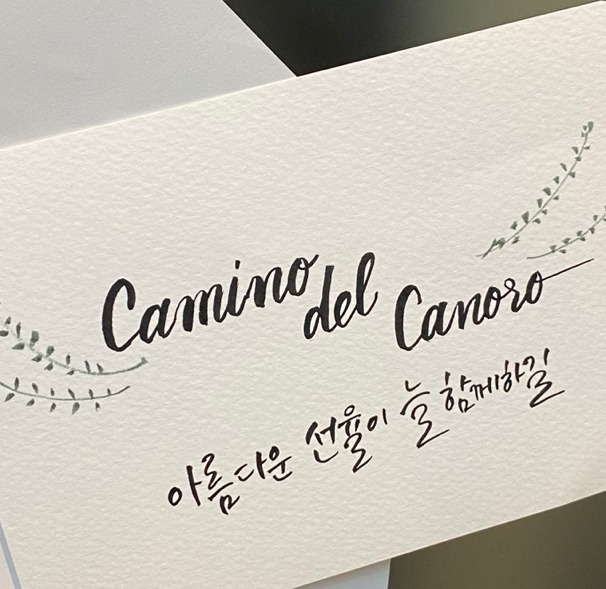 Camino del Canoro
아름다운 선율이 늘 함께하길